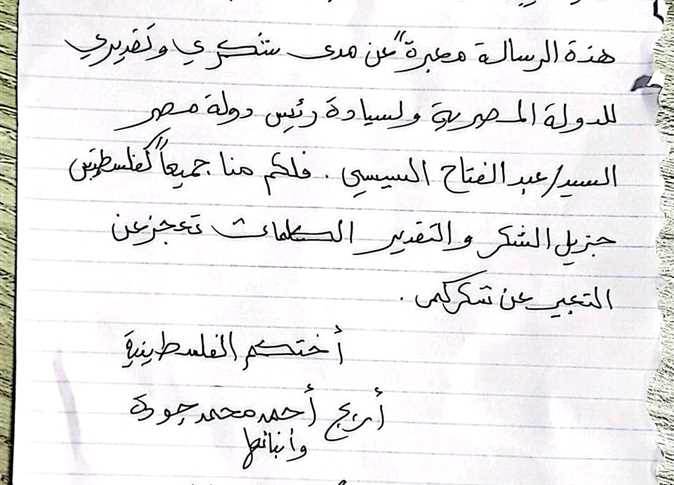 هذه الرسالة معبرة عن مدى شكري وتقديري
للدولة المصرية ولسيادة رئيس دولة مصر
السيد/عبد الفتاح السيسي . فلكم منا جميعاً كفلسطينين
جزيل الشكر والتقدير الكلمات تعجز عن
التعبير عن شكركم .
أختكم الفلسطينية
أريج أحمد محمد جودة
وأبنائها